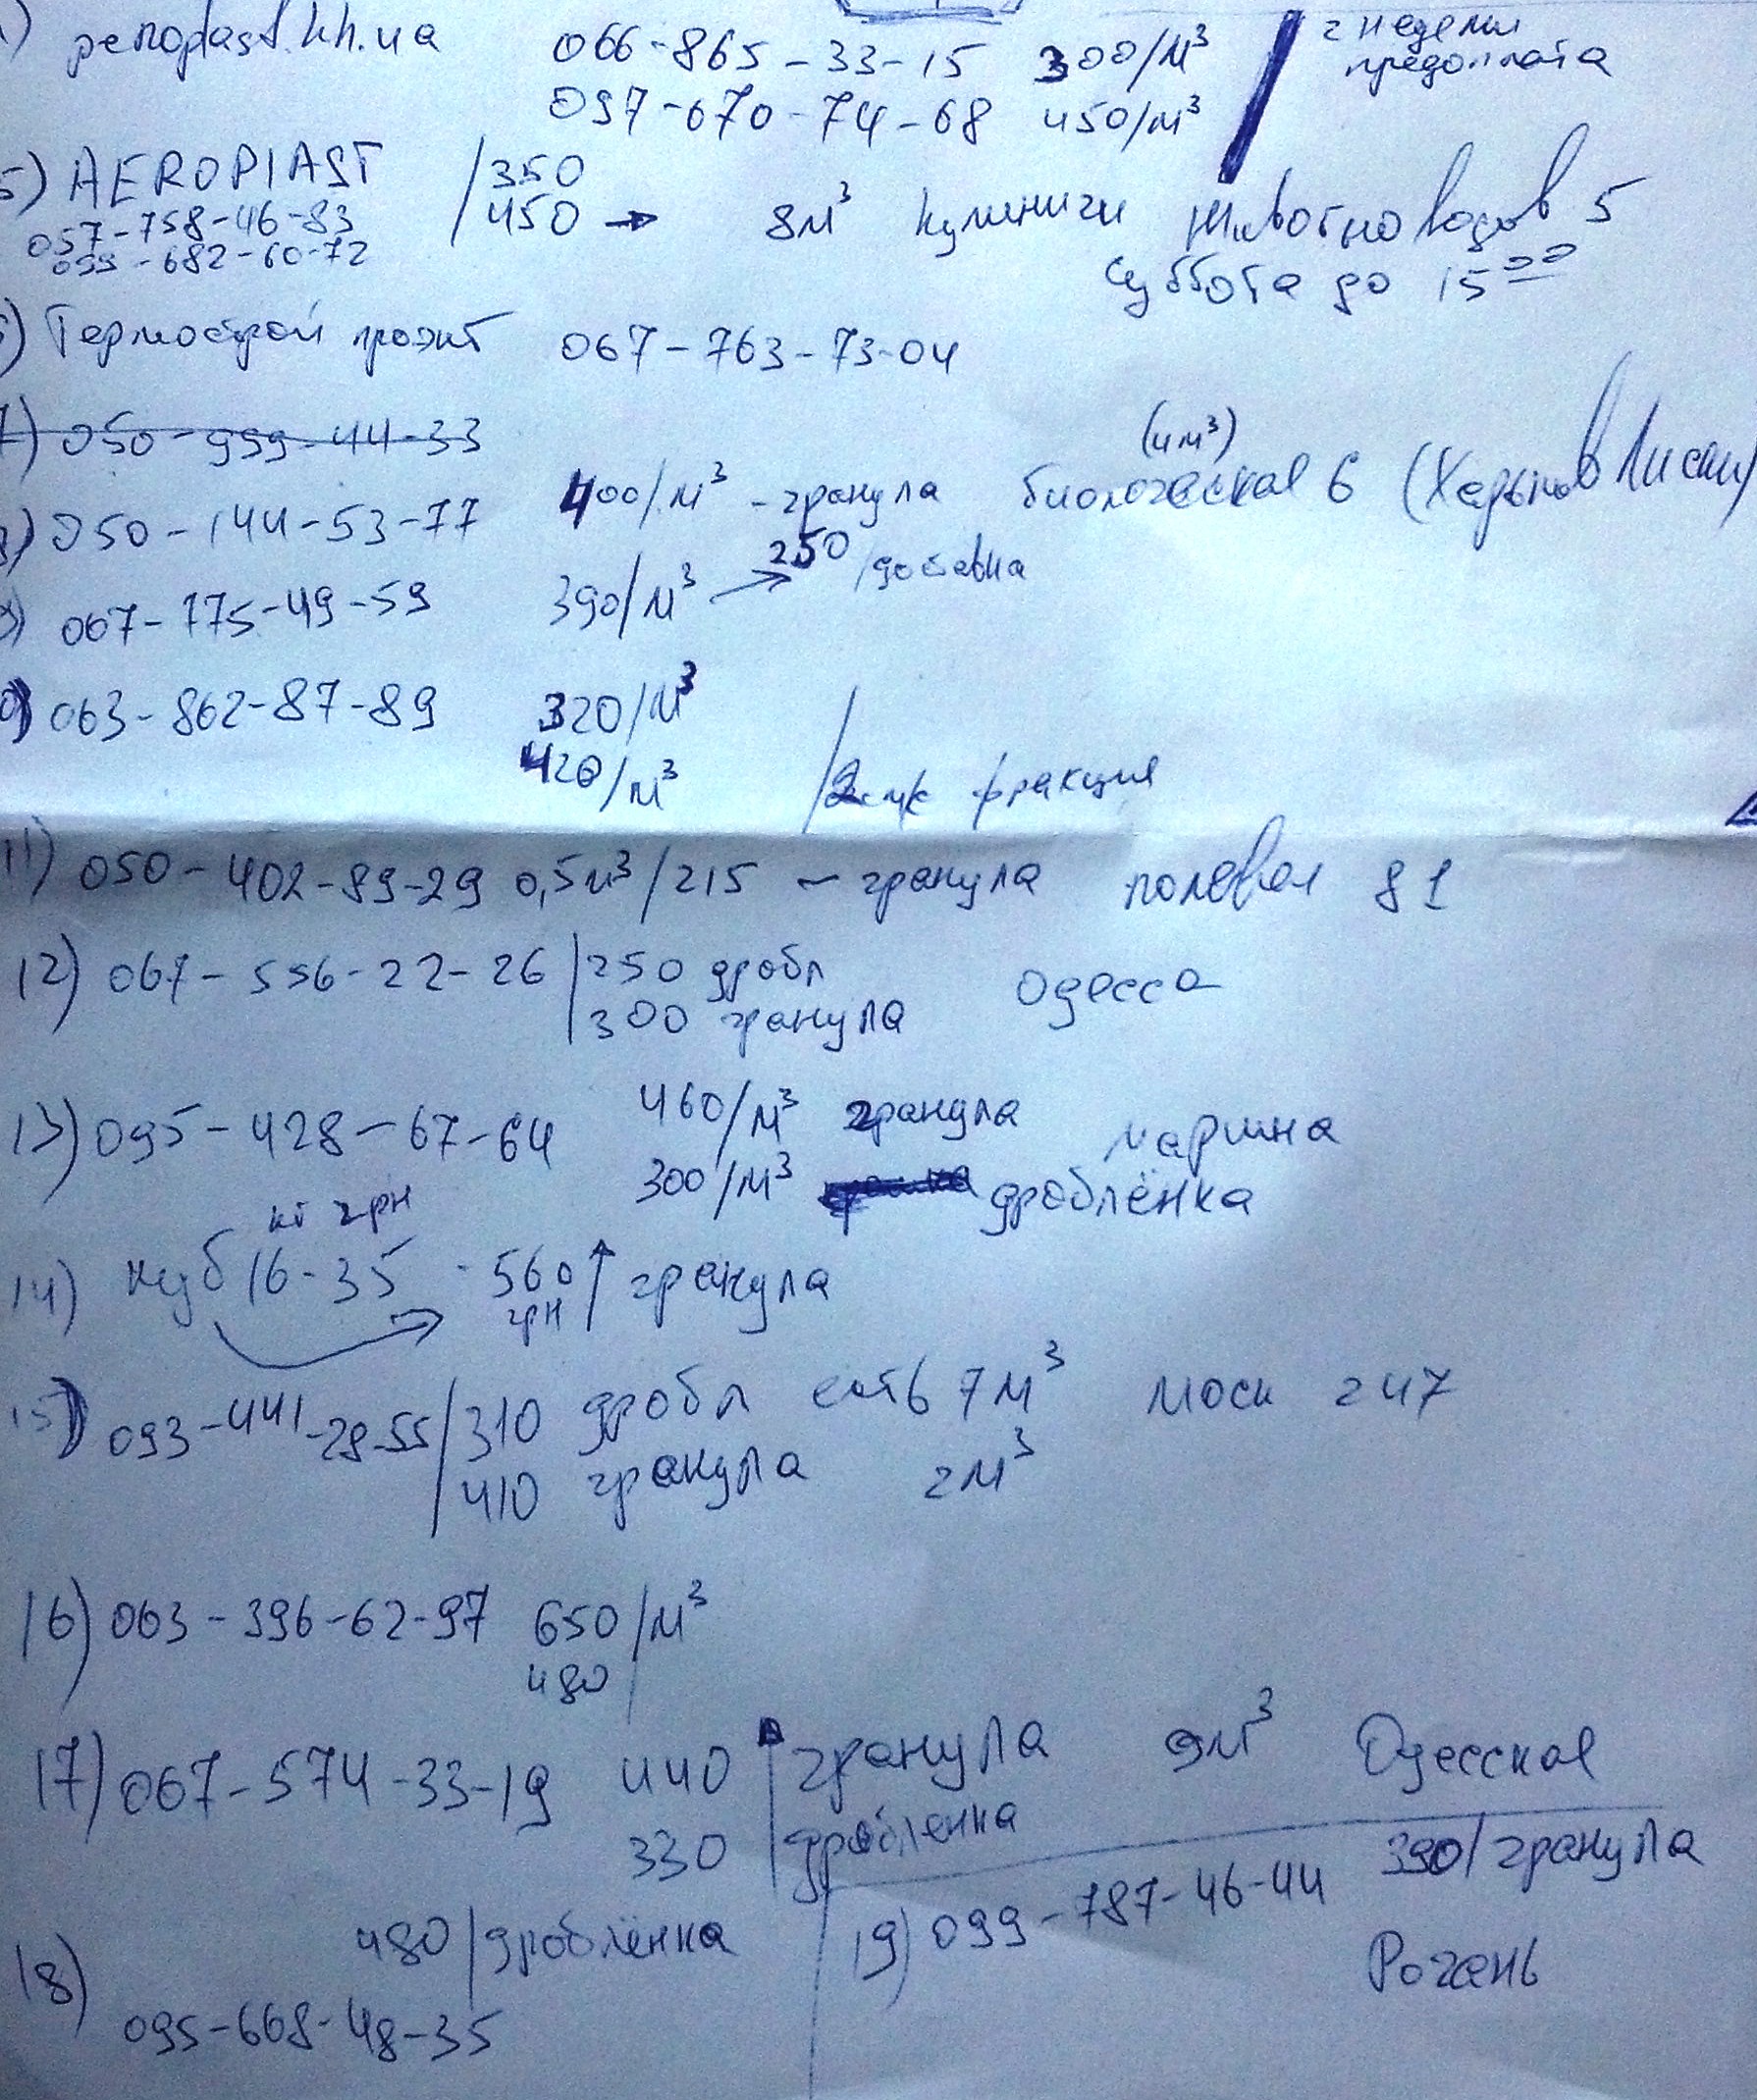 ) penoplast.kh.ua 066-865-33-15 300/м³ 2 недели
097-670-74-68 450/м³ предоплата
5) AEROPLAST /350
057-758-46-83 /450 → 8м³ Кулиничи Животноводов 5
099-682-60-72 Суббота до 15⁰⁰
) Термострой проэкт 067-763-73-04
7) 050-959-44-33
(4м³)
8) 050-144-53-77 400/м³ - гранула биологическая 6 (Харьков
9) 067-775-49-59 390/м³ → 250 /добавка
0) 063-862-87-89 320/м³
420/м³ / фракция
11) 050-402-89-29 0,5м³/215 - гранула полевая 81
12) 067-556-22-26 /250 дробл Одесса
/300 гранула
13) 095-428-67-64 460/м³ гранула марина
300/м³ дроблёнка
кг грн
14) куб 16-35 - 560 грн ↑ гранула
15) 093-441-28-55 /310 дробл есть 7м³ моск 247
/410 гранула 2м³
16) 063-396-62-97 650/м³
480
17) 067-574-33-19 440 гранула 9м³ Одесская
330 дробленка
18) 480/дроблёнка
095-668-48-35
19) 099-787-46-44 390/гранула
Рогань